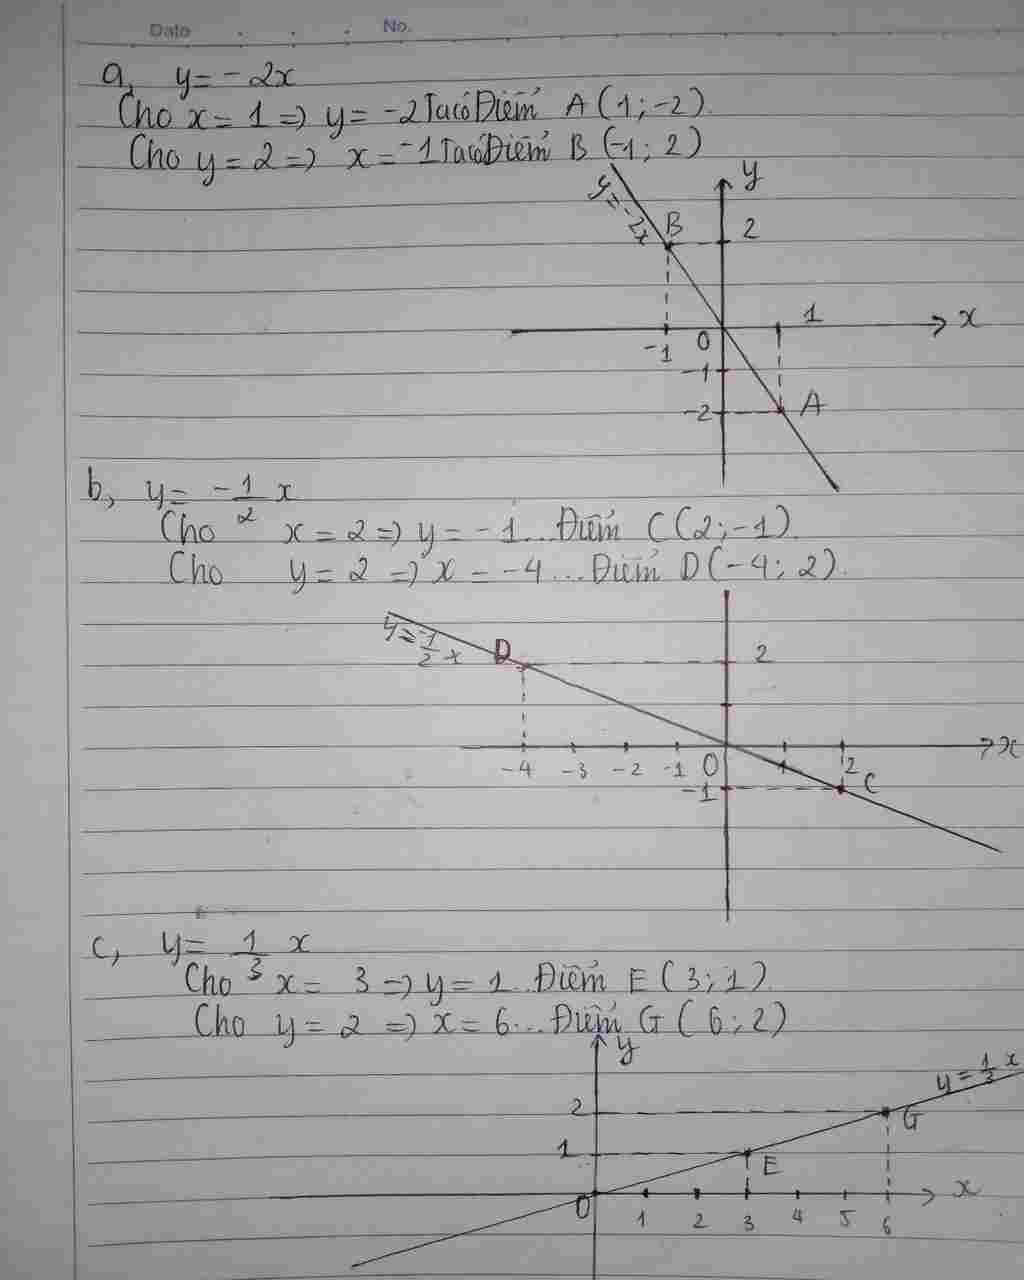 Date No.
a, y = -2x
Cho x = 1 => y = -2 Ta có Điểm A (1; -2).
Cho y = 2 => x = -1 Ta có Điểm B (-1; 2)
y
y = -2x
B 2
1 x
-1 0
-1
-2 A
b, y = -1/2 x
Cho x = 2 => y = -1... Điểm C (2; -1).
Cho y = 2 => x = -4... Điểm D (-4; 2).
y = -1/2 x
D 2
x
-4 -3 -2 -1 0 1 2
-1 C
c, y = 1/3 x
Cho x = 3 => y = 1... Điểm E (3; 1).
Cho y = 2 => x = 6... Điểm G (6; 2)
y
y = 1/3 x
2 G
1 E
0 x
1 2 3 4 5 6